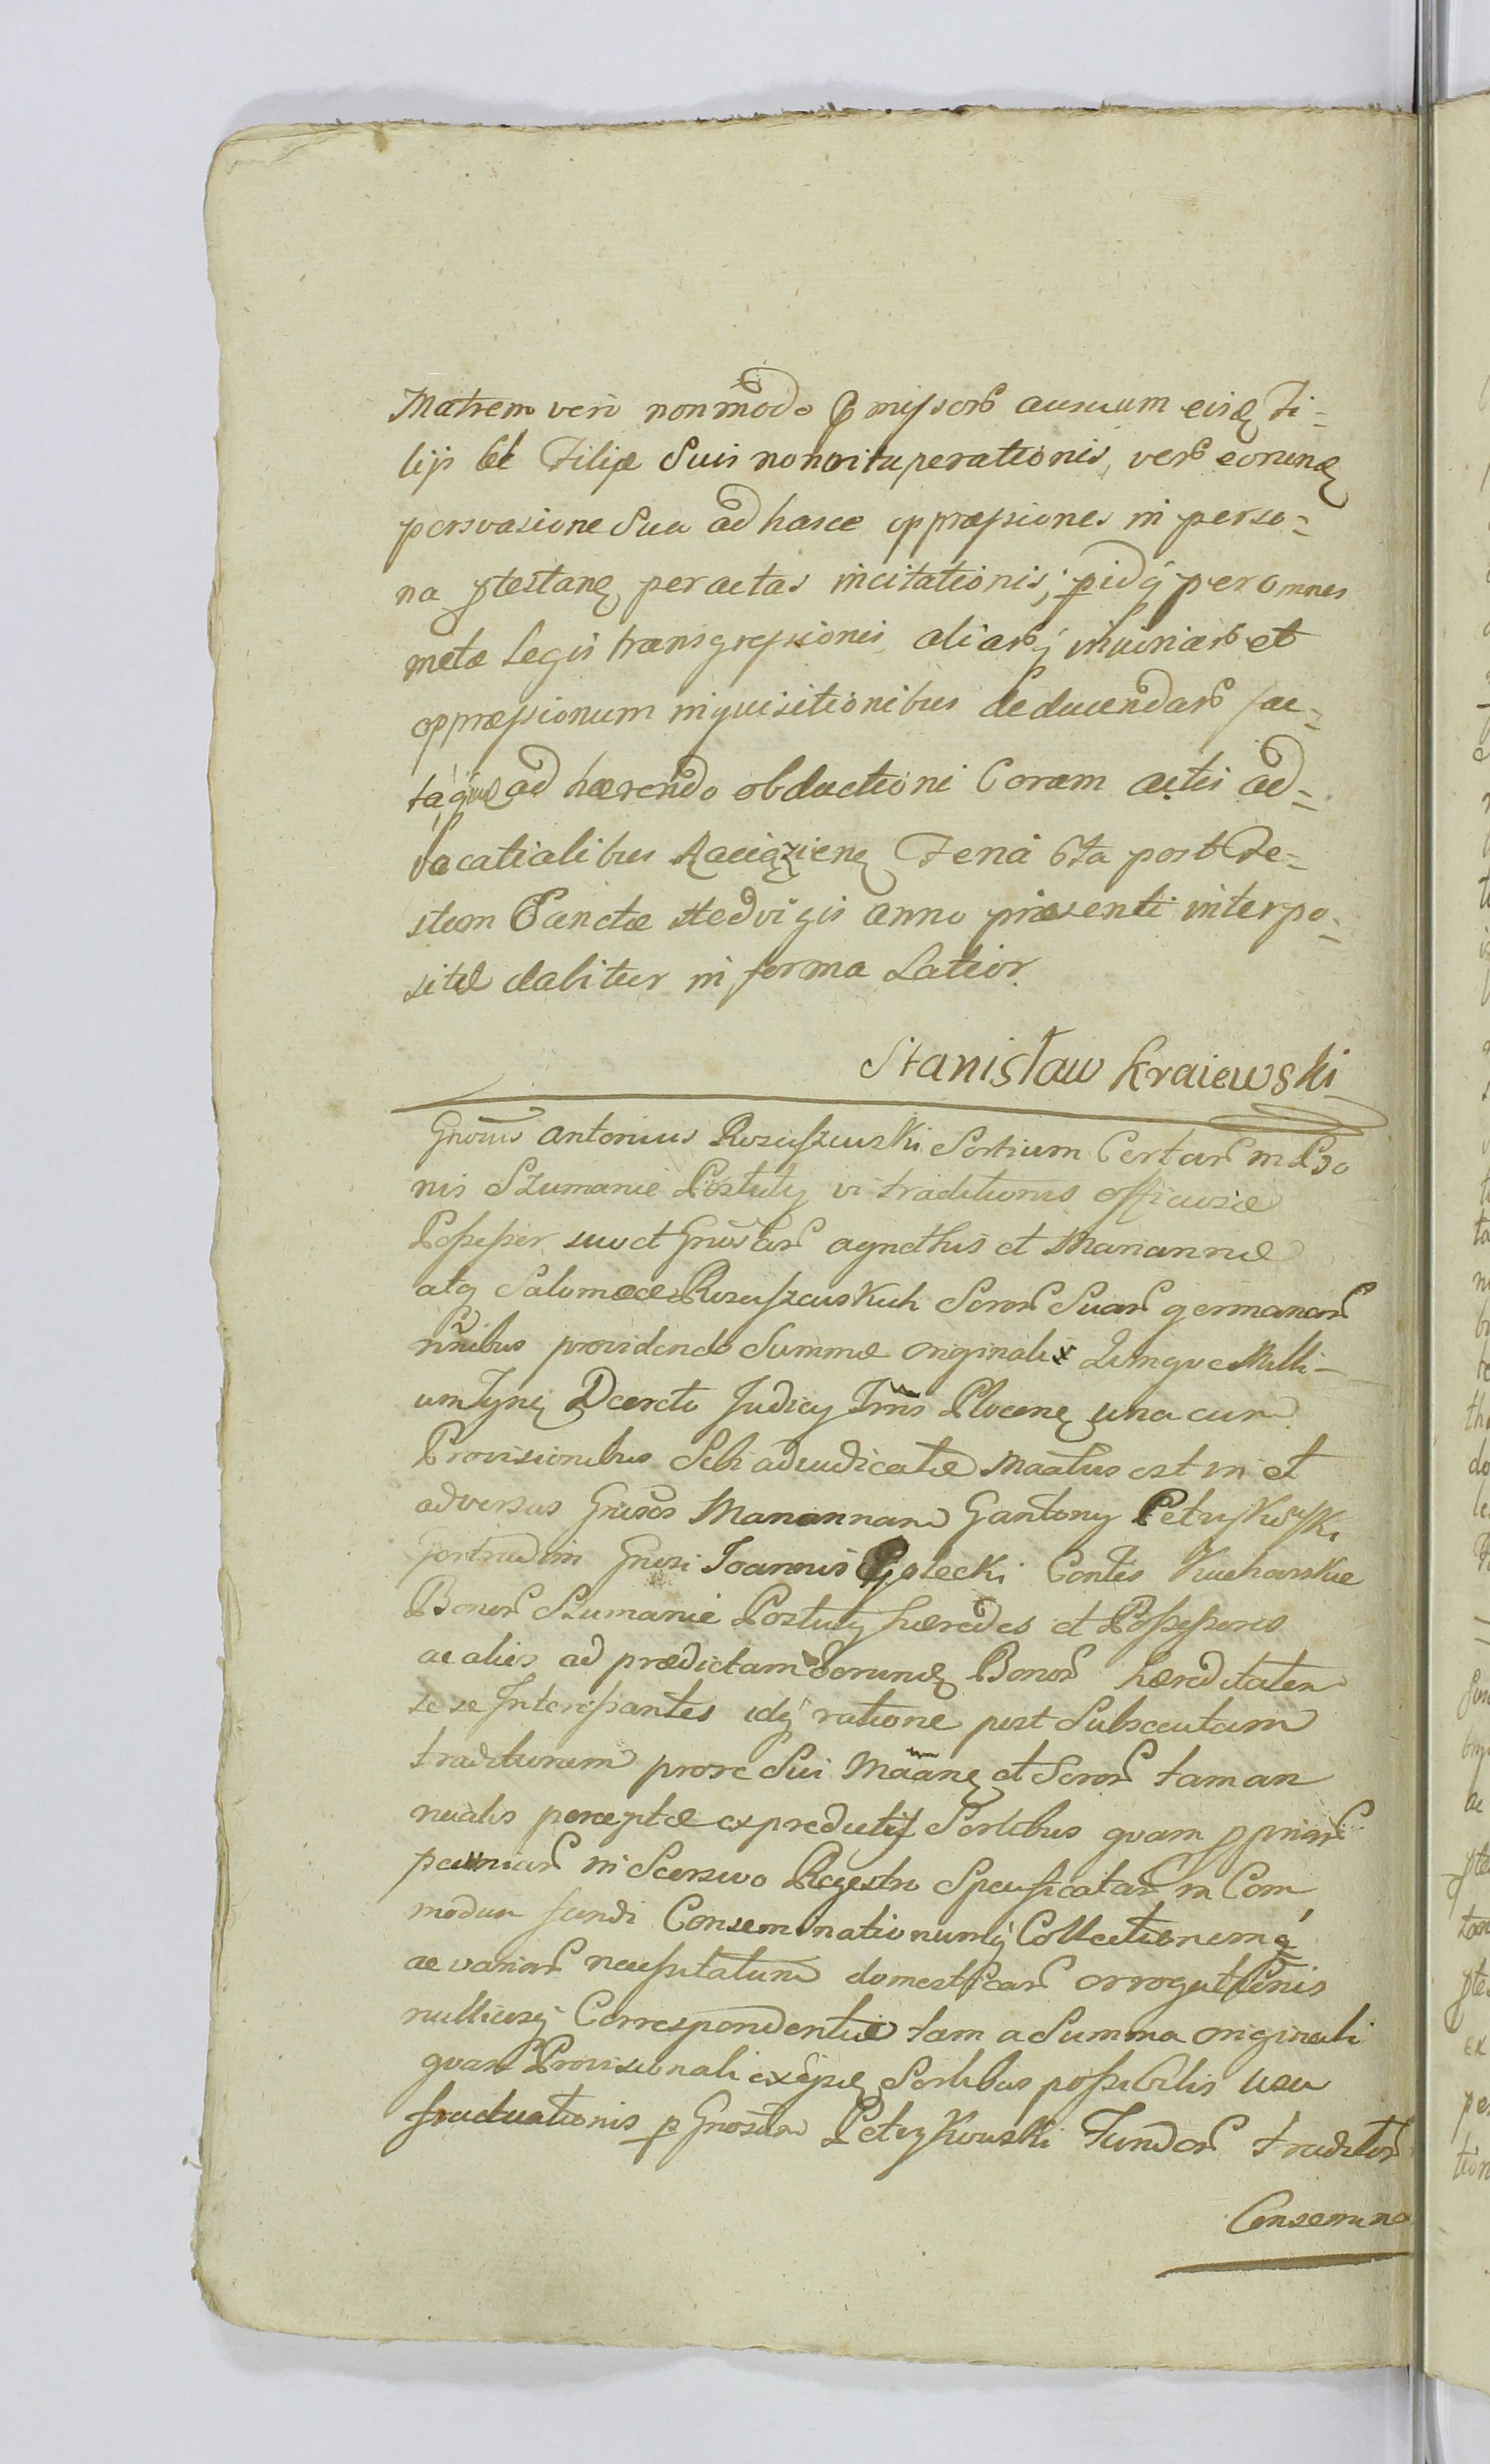 Matrem vero non modo præmissorũ ausuum eisdẽ Fi=
lijs et Filiæ Suis non vituperationis, verũ eorundẽ
persvasione Sua ad hasce oppræssiones in perso=
na ptestanẽ peractas incitationis; pidq̃ per omnes
metæ Legis transgressionis aliarũq̃ iniuriarũ et
oppræssionum inquisitionibus deducendarũ fac=
tæ,quæ ad hærendo obductioni Coram actis ad=
vocatialibus Raciązienẽ Feria 6ta post Fe=
stum Sanctæ Hedvigis anno præsenti interpo=
sitæ dabitur in forma Latior.
Stanisław Kraiewski
Gnosus Antonius Rosciszewski Sortium Certarũ in Bo
nis Szumanie Pôztuty vi traditionis officiosæ
Possessor suo et Gnosarũ Agnethis et Mariannæ
atq̃ Salomeæ Rosciszewskich Sororũ Suarũ germanarũ
nnibus providendo Summæ originalis Quinque Milli-
um Tynf Decreto Judicy Trnis Plocenẽ una cum
Provisionibus Sibi adiudicatæ Maatus est in et
adversus Gnosos Mariannam G Antony Petrykowski
Gertrudim Gnosi Joannis Golecki Contes Kucharskie
Bonorũ Szumanie Poztuty hæredes et Possessores
ac alios ad prædictam eorundẽ Bonorũ hæreditatem
sese Interessantes idq̃ ratione post Subsecutam
traditionem prore Sui Maanẽ et Sororũ tam an
nualis perceptæ ex predictis Sortibus quam ppriarũ
pecuniarũ in Seorsivo Regestro Specificatarũ in Com
modum fundi Conseminationumq̃ Collectionemq̃
ac variarũ necessitatum domesticarũ erogationis
nulliusq̃ Correspondentiæ tam a Summa originali
quam Provisionali ex ijsdẽ Sortibus possibilis usu
fructuationis p Gnosum Petrykowski Fundorũ traditorũ
Consemina